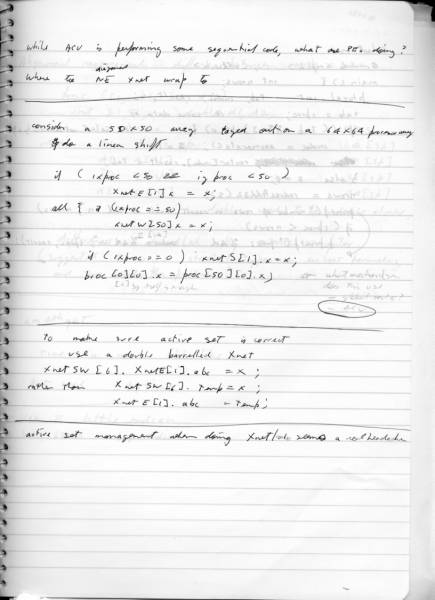 while ACU is performing some sequential code, what are PEs doing?
where the diagonal NE Xnet wrap to
consider a 50x50 array layed out on a 64x64 processor array
do a linear shift
if (ixproc <50 iyproc <50)
xnetE[1]x = x;
all { if (ixproc == 50)
xnetW[50]x = x;
if (ixproc == 0) xnetS[1].x = x;
proc[0][0].x = proc[50][0].x
to make sure active set is correct
use a double barrelled Xnet
xnetSW[6].XnetE[1].abc = x ;
rather than XnetSW[6].Temp = x ;
XnetE[1].abc = Temp;
active set management when doing Xnet/ seems a real headache